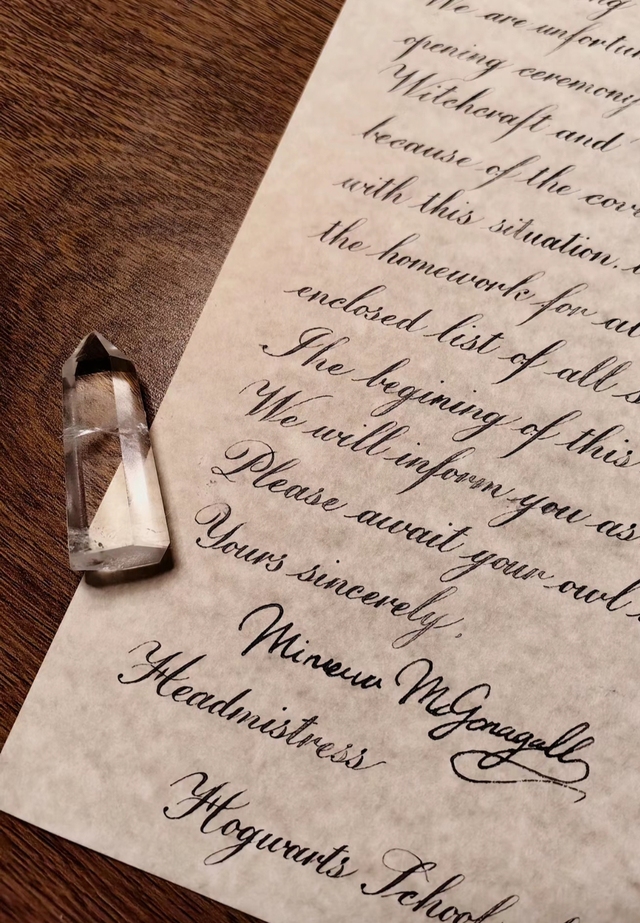 We are unfortun
opening ceremony
Witchcraft and
because of the cov
with this situation.
the homework for al
enclosed list of all s
The begining of this
We will inform you as
Please await your owl
Yours sincerely,
Minerva McGonagall
Headmistress
Hogwarts School